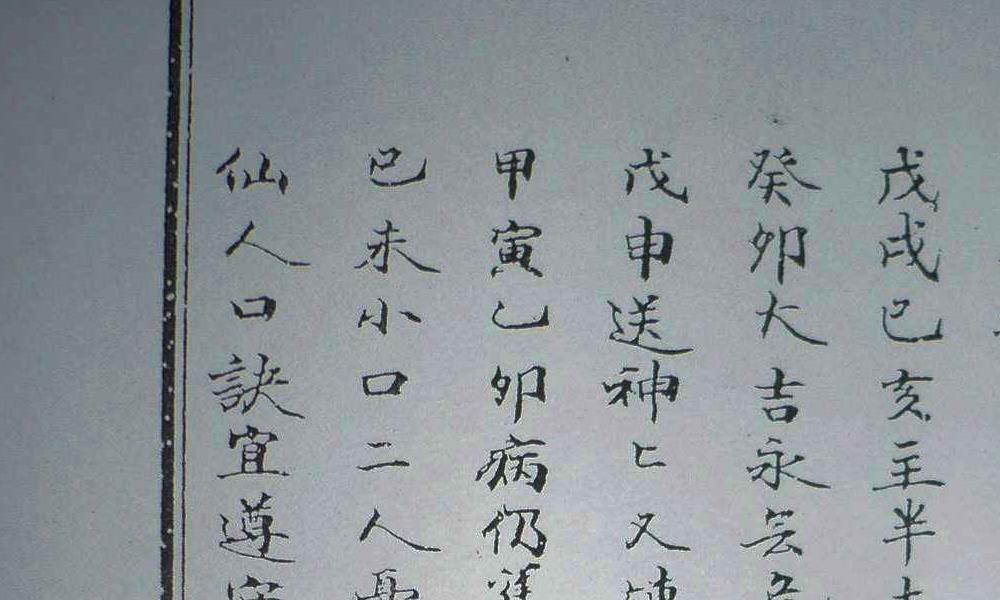 戊戌巳亥主半
癸卯大吉永無
戊申送神匕又
甲寅乙卯病仍舊
巳未小口二人憂
仙人口訣宜遵守